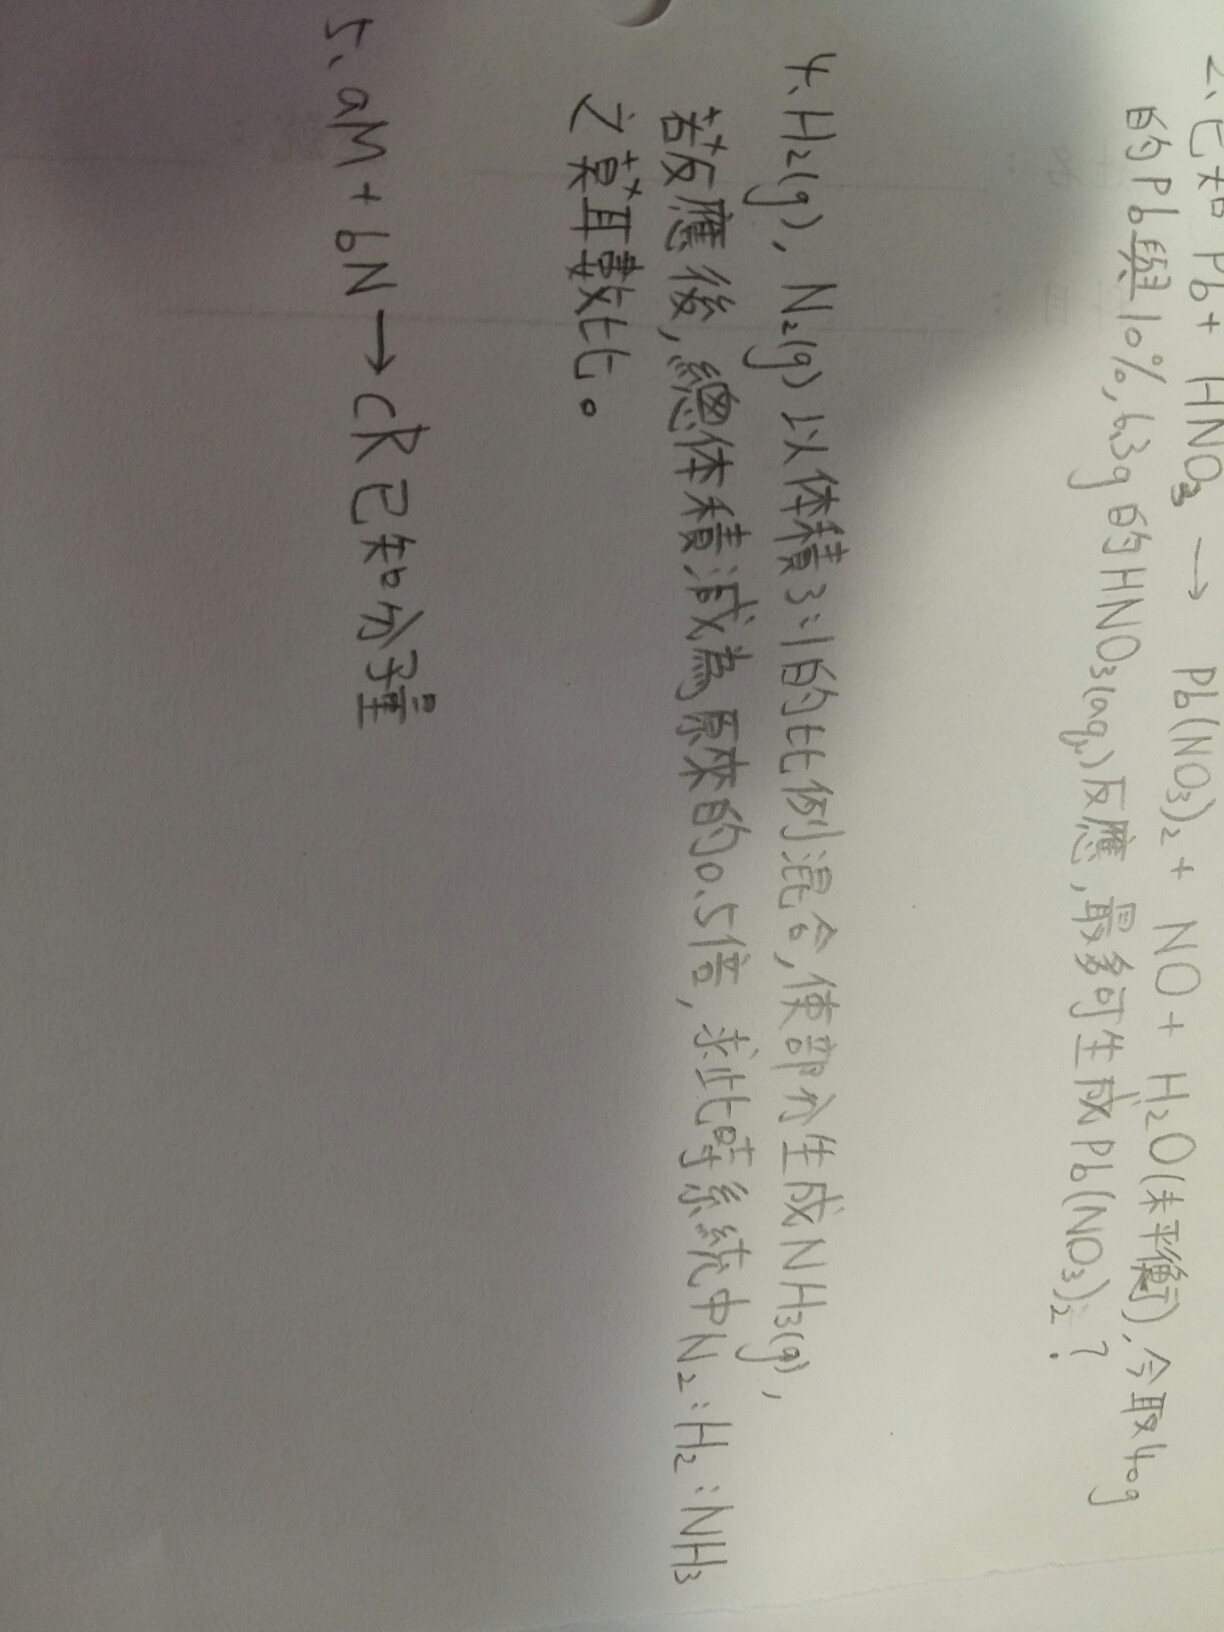 2、已知 Pb + HNO₃ → Pb(NO₃)₂ + NO + H₂O(未平衡), 今取40g
的Pb與10%, 63g的HNO₃(aq)反應, 最多可生成Pb(NO₃)₂?
4、H₂(g), N₂(g)以体積3:1的比例混合, 使部分生成NH₃(g),
若反應後, 總体積減為原來的0.5倍, 求此時系統中N₂:H₂:NH₃
之莫耳數比。
5、aM + bN → cR 已知分子量